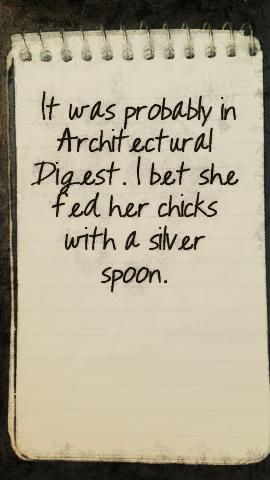 It was probably in
Architectural
Digest. I bet she
fed her chicks
with a silver
spoon.